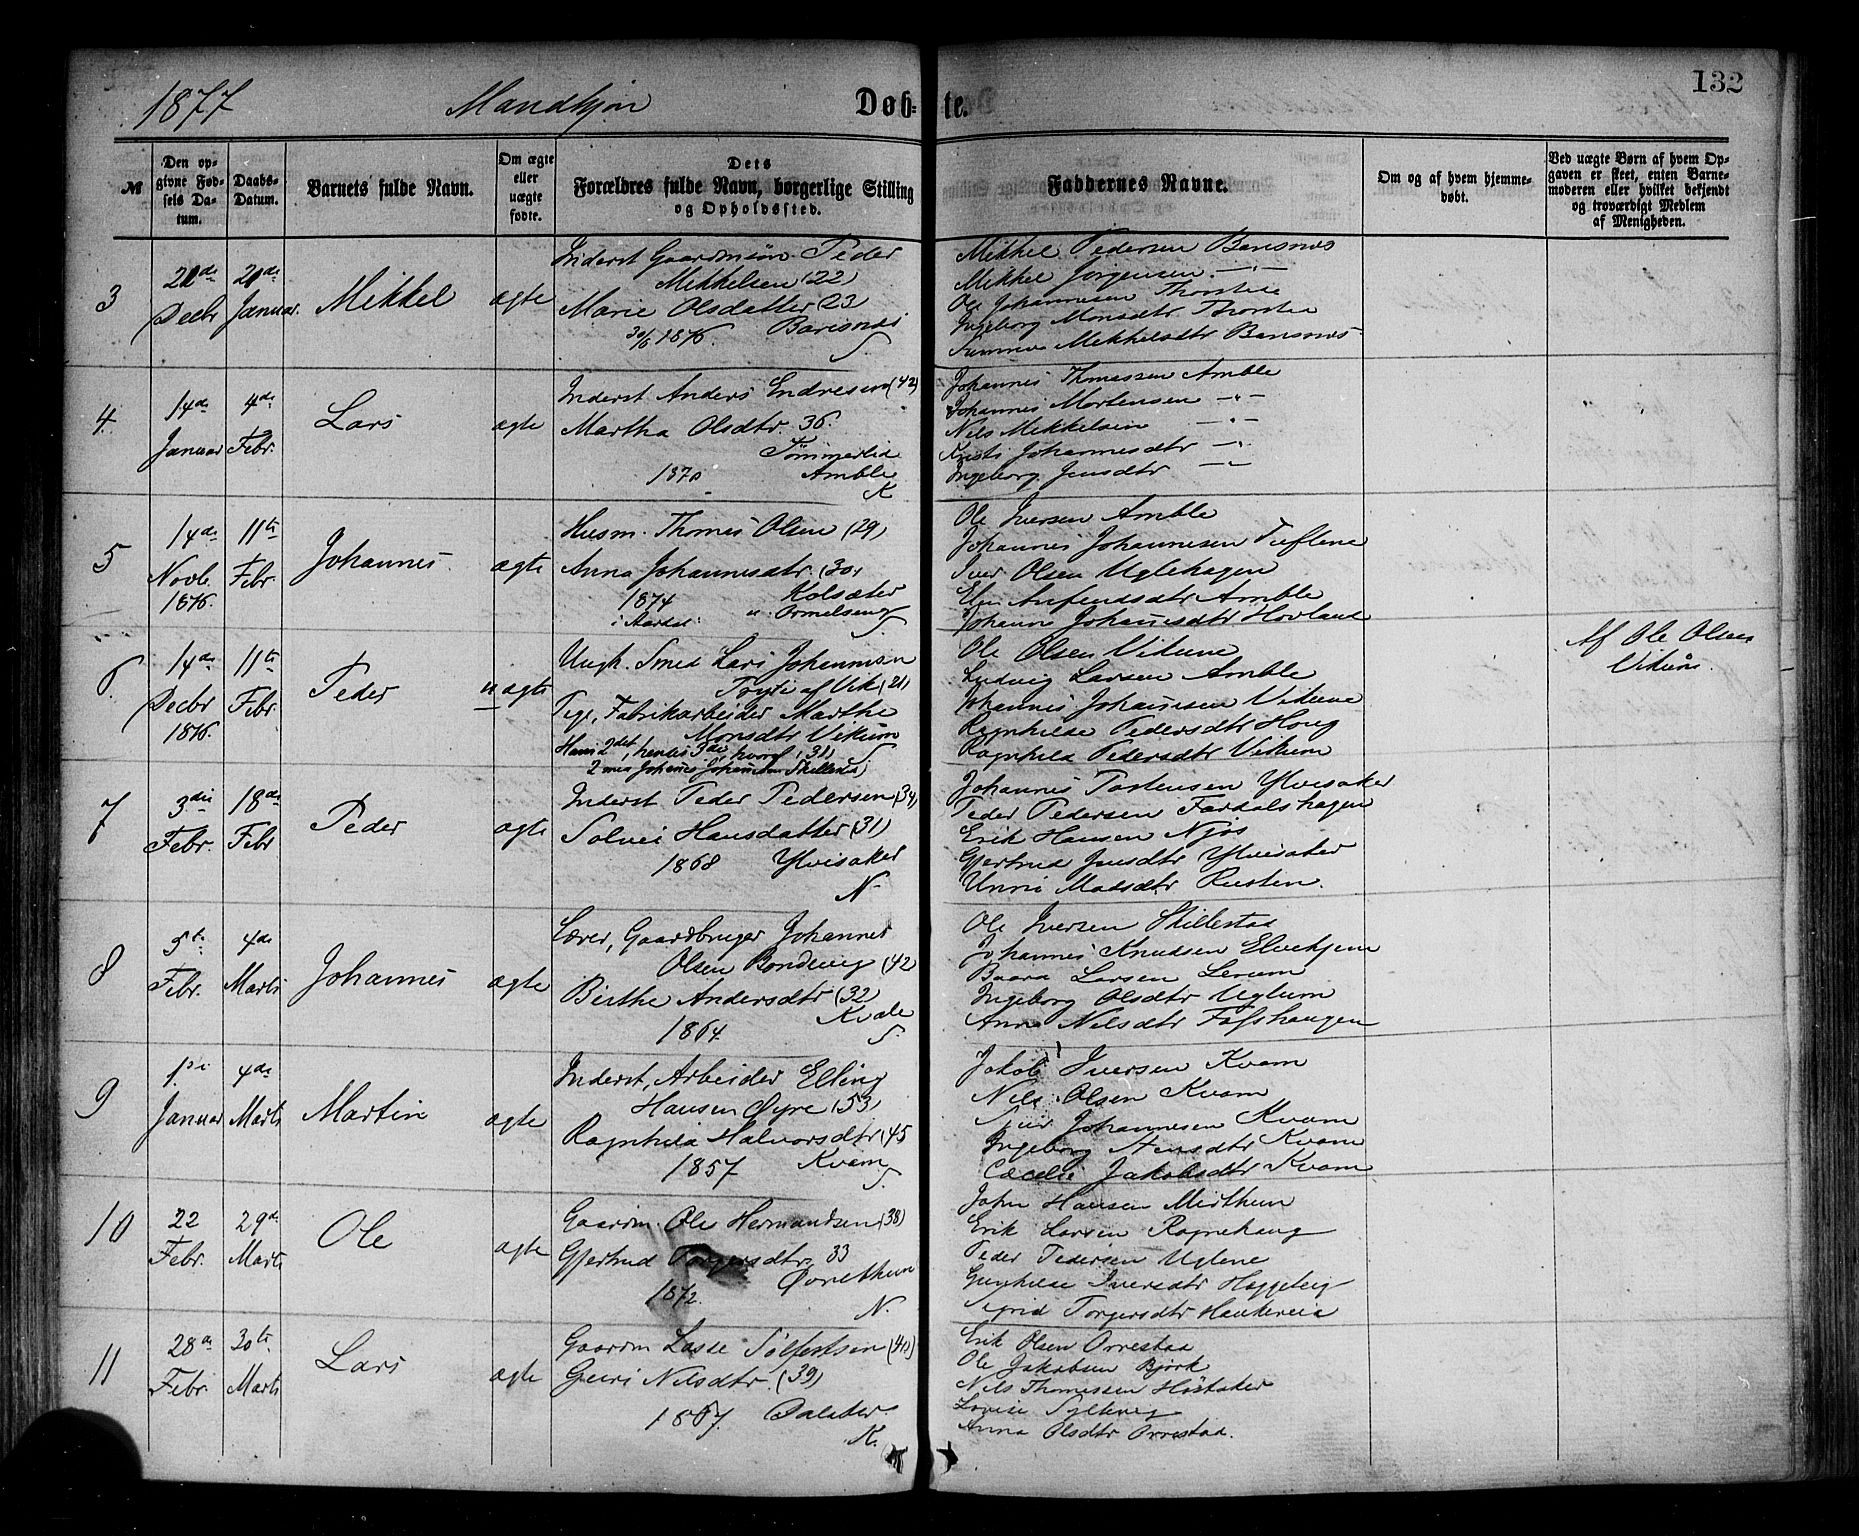 132
1877 Mandkjøn Døb-te.
№
Den op-
givne Fød-
sels Da-
tum.
Daabs-
Datum.
Barnets fulde Navn.
Om ægte
eller
uægte
fødte.
Dets
Forældres fulde Navn, borgerlige Stilling
og Opholdssted.
Faddernes Navne.
Om og af hvem hjemme-
døbt.
Ved uægte Børn af hvem Op-
gaven er skeet, enten Barne-
moderen eller hvilket bekjendt
og troværdigt Medlem
af Menigheden.
3
Decbr
Januar
Mikkel
ægte
Inderst Gaardmsøn Peder
Mikkelsen (22)
Marie Olsdatter (23
1876. Barsnæs
S
Mikkel Pedersen Barsnæs
Mikkel Jørgensen —"—
Ole Johannesen
Ingeborg Monsdtr
Mikkelsdtr Barsnæs
4
14de
Januar
4de
Febr.
Lars
ægte
Inderst Anders Endresen (42)
Martha Olsdtr. 36.
Tømmerlid
1870 Amble
K
Johannes Thomassen Amble
Johannes Mortensen —"—
Nils Mikkelsen —"—
Kristi Johannesdtr —"—
Ingeborg Jensdtr —"—
5
14de
Novb.
1876.
11te
Febr
Johannes.
ægte
Husm. Thomes Olsen (29)
Anna Johannesdtr. (30)
1874 Kolsæter
i Aardal " Ormelseng
S
Ole Iversen Amble
Johannes Johannesen Tuftene
Iver Olsen Uglehagen
Amble
Johannesdtr Hovland
6
14de
Decbr
1876.
11te
Febr
Peder
uægte
Ungk. Smed Lars Johannesen
af Vik (21)
Pige, Fabrikarbeider Marthe
Monsdtr Vikum
Hans 2det, hendes 3die, hvoraf (31)
2 med Johannes Johannesen Skillestad
S
Ole Olsen Vikum
Ludvig Larsen Amble
Johannes Johannesen Vikum
Ragnhilde Pedersdtr Houg
Ragnhild Pedersdtr Vikum
Af Ole Olsen
Vikum.
7
3die
Febr.
18de
Febr
Peder
ægte
Inderst Peder Pedersen (34)
Solvei Hansdatter (31)
1868 Ylvisaker
N
Johannes Tostensen Ylvisaker
Peder Pedersen Fardalshagen
Erik Hansen Njøs
Gjertrud Jensdtr Ylvisaker
Unni Madsdtr Rusten.
8
5te
Febr.
4de
Marts
Johannes
ægte
Lærer, Gaardbruger Johannes
Olsen Bondevig (42
Birthe Andersdtr (32)
1864. Kvale
S.
Ole Iversen Skillestad
Johannes Knudsen Elvekjem
Baard Larsen Lerum
Ingeborg Olsdtr Uglum
Anna Nilsdtr Fosshaugen
9
1ste
Januar
4de
Marts
Martin
ægte
Inderst, Arbeider Elling
Hansen Øyre (53)
Ragnhild Halvorsdtr (45
1857 Kvam
S.
Jakob Iversen Kvam
Nils Olsen Kvam
Iver Johannesen Kvam
Ingeborg Jensdtr Kvam
Cæcelie Jakobsdtr Kvam
10
22
Febr.
29de
Marts
Ole
ægte
Gaardm. Ole Hermundsen (38)
Gjertrud Torgersdtr 33
1872.
N.
John Hansen Mirthun
Erik Larsen Ragnehaug
Peder Pedersen Uglene
Gunhilde Iversdtr Haggebig
Sigrid Torgersdtr Haukereid
11
28de
Febr.
30te
Marts
Lars
ægte
Gaardm Lasse Sølfestsen (40)
Guri Nilsdtr. (39)
1867.
K.
Erik Olsen Orrestad
Ole Jakobsen Bjørk
Nils Thomassen Høstaker
Lovise Sylteveig
Anna Olsdtr Orrestad.